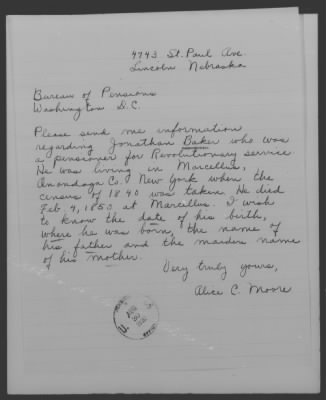 4743 St. Paul Ave.
Lincoln Nebraska
Bureau of Pensions
Washington D.C.
Please send me information
regarding Jonathan Baker who was
a pensioner for Revolutionary service
He was living in Marcellus,
Onondaga Co. New York when the
census of 1840 was taken. He died
Feb. 4, 1853 at Marcellus. I wish
to know the date of his birth,
where he was born, the name of
his father and the maiden name
of his mother.
Very truly yours,
Alice C. Moore